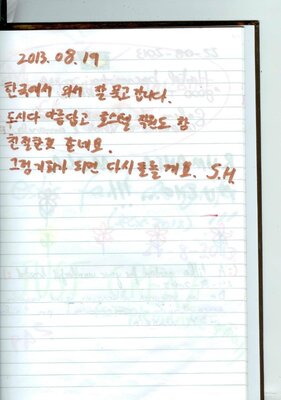 2013. 08. 19
한국에서 와서 잘 묵고 갑니다.
도시도 아름답고 호스텔 직원도 참
친절하고 좋네요.
그럼 기회가 되면 다시 들를게요. S.H.